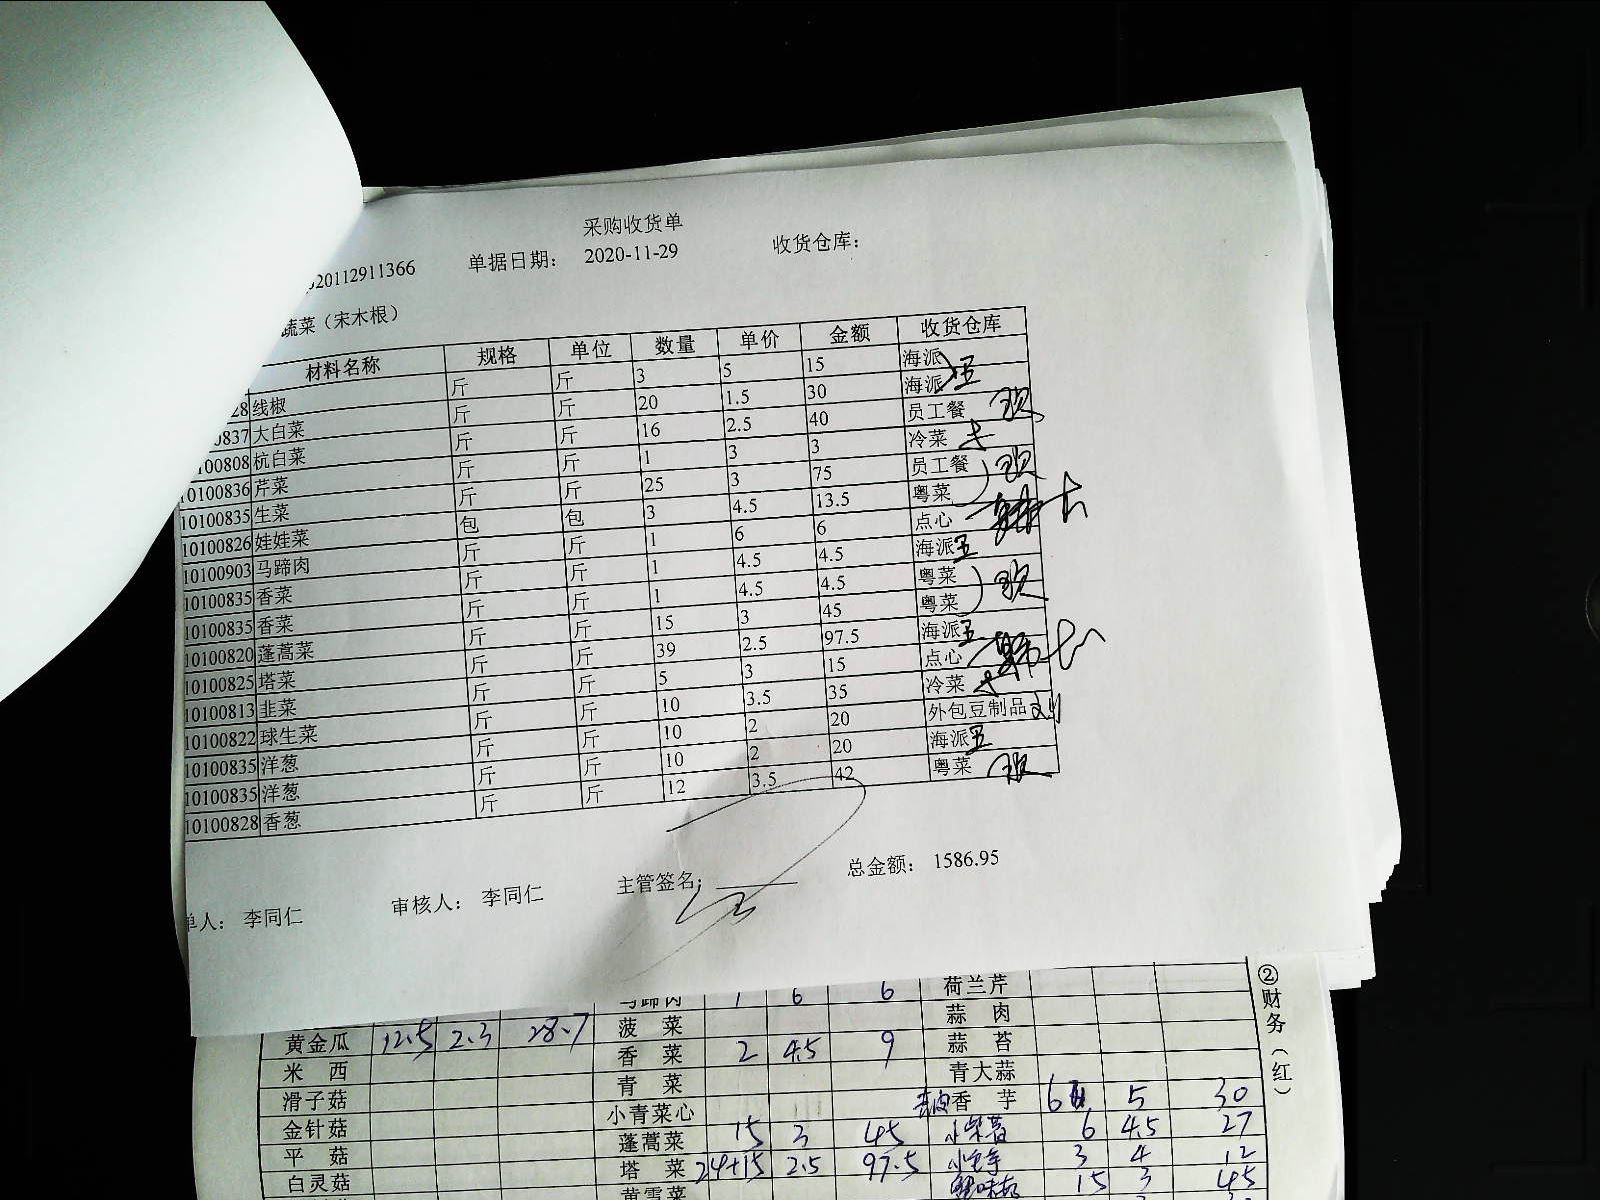 采购收货单
20112911366 单据日期： 2020-11-29 收货仓库：
蔬菜（宋木根）
材料名称 规格 单位 数量 单价 金额 收货仓库
28 线椒 斤 斤 3 5 15 海派
0837 大白菜 斤 斤 20 1.5 30 海派 王
100808 杭白菜 斤 斤 16 2.5 40 员工餐
10100836 芹菜 斤 斤 1 3 3 冷菜
10100835 生菜 斤 斤 25 3 75 员工餐
10100826 娃娃菜 包 包 3 4.5 13.5 粤菜
10100903 马蹄肉 斤 斤 1 6 6 点心
10100835 香菜 斤 斤 1 4.5 4.5 海派 王
10100835 香菜 斤 斤 1 4.5 4.5 粤菜
10100820 蓬蒿菜 斤 斤 15 3 45 粤菜
10100825 塔菜 斤 斤 39 2.5 97.5 海派 王
10100813 韭菜 斤 斤 5 3 15 点心
10100822 球生菜 斤 斤 10 3.5 35 冷菜
10100835 洋葱 斤 斤 10 2 20 外包豆制品 刘
10100835 洋葱 斤 斤 10 2 20 海派 王
10100828 香葱 斤 斤 12 3.5 42 粤菜
单人： 李同仁 审核人： 李同仁 主管签名： 总金额： 1586.95
马蹄肉 1 6 6 荷兰芹
黄金瓜 12.5 2.3 28.7 菠菜 蒜肉
米西 香菜 2 4.5 9 蒜苔
滑子菇 青菜 青大蒜
金针菇 小青菜心 去皮香芋 6 5 30
平菇 蓬蒿菜 15 3 45 6 4.5 27
白灵菇 塔菜 24+15 2.5 97.5 3 4 12
黄雪菜 蟹味菇 15 3 45
②财务（红）